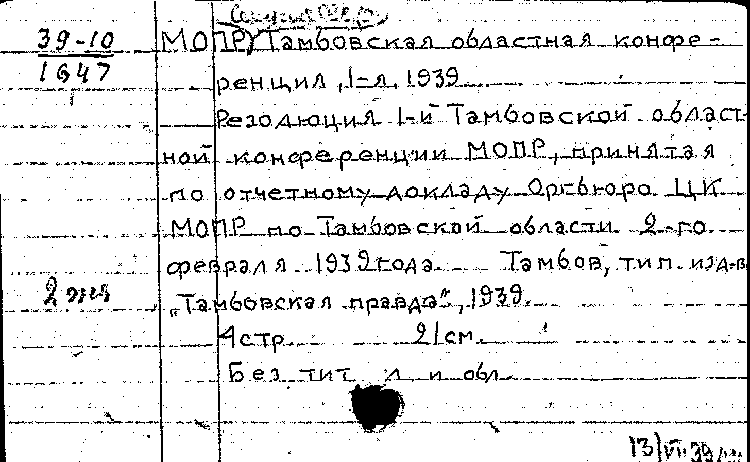 39-10
1647
МОПР, Тамбовская областная конфе-
ренция, 1-я, 1939.
Резолюция 1-й Тамбовской област-
ной конференции МОПР, принятая
по отчетному докладу Оргбюро ЦК
МОПР по Тамбовской области 2-го
февраля 1939 года. Тамбов, тип. изд-ва
2 экз
„Тамбовская правда“, 1939.
4 стр. 21 см.
Без тит. л. и обл.
13/VI-39